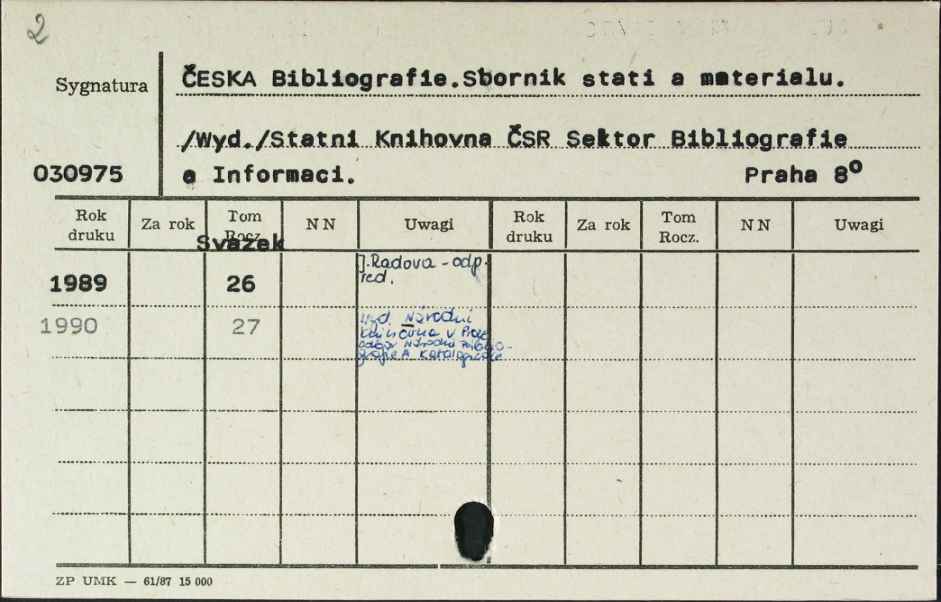 2
Sygnatura
ČESKA Bibliografie.Sbornik stati a materialu.
/Wyd./Statni Knihovna ČSR Sektor Bibliografie
030975
a Informaci. Praha 8º
Rok druku Za rok Tom Rocz. NN Uwagi Rok druku Za rok Tom Rocz. NN Uwagi
Svazek
1989 26 J.Radova - odp.
red.
1990 27 wyd. Národní
v
Národní
grafie A
ZP UMK — 61/87 15 000